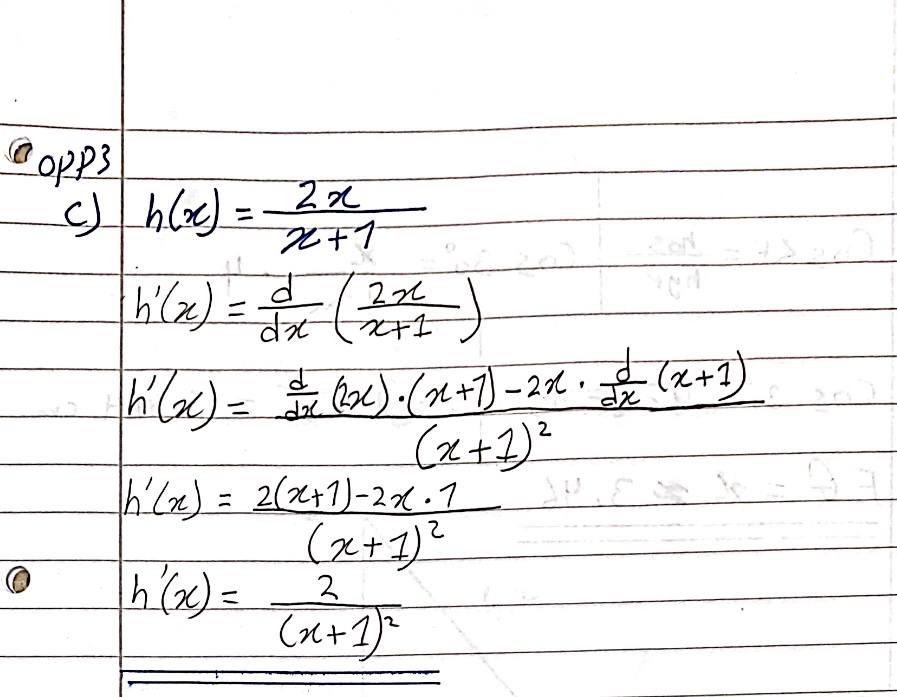 opp3
c) h(x) = 2x / x+1
h'(x) = d/dx (2x / x+1)
h'(x) = d/dx (2x) · (x+1) - 2x · d/dx (x+1) / (x+1)²
h'(x) = 2(x+1) - 2x · 1 / (x+1)²
h'(x) = 2 / (x+1)²